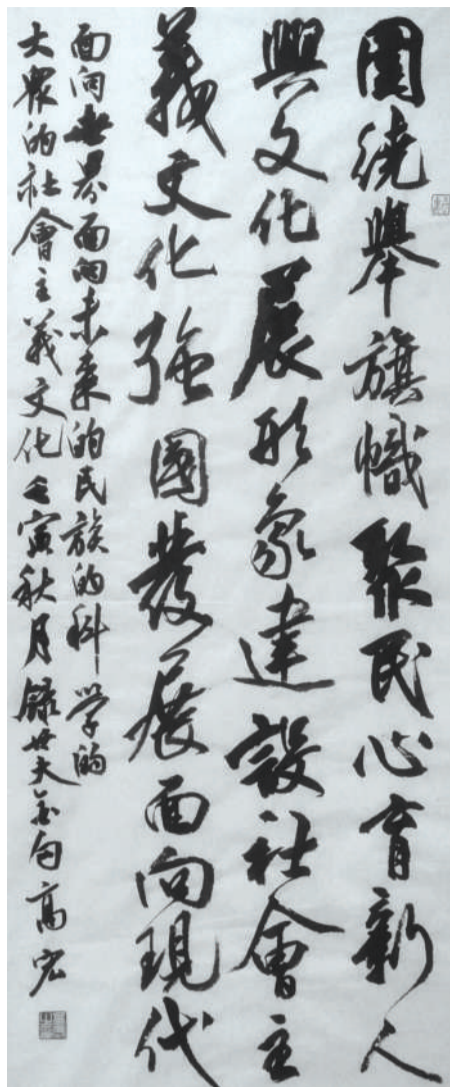 圍繞舉旗幟聚民心育新人
興文化展形象建設社會主
義文化強國發展面向現代
面向世界面向未來的民族的科学的
大眾的社會主義文化壬寅秋月錄廿大金句高宏